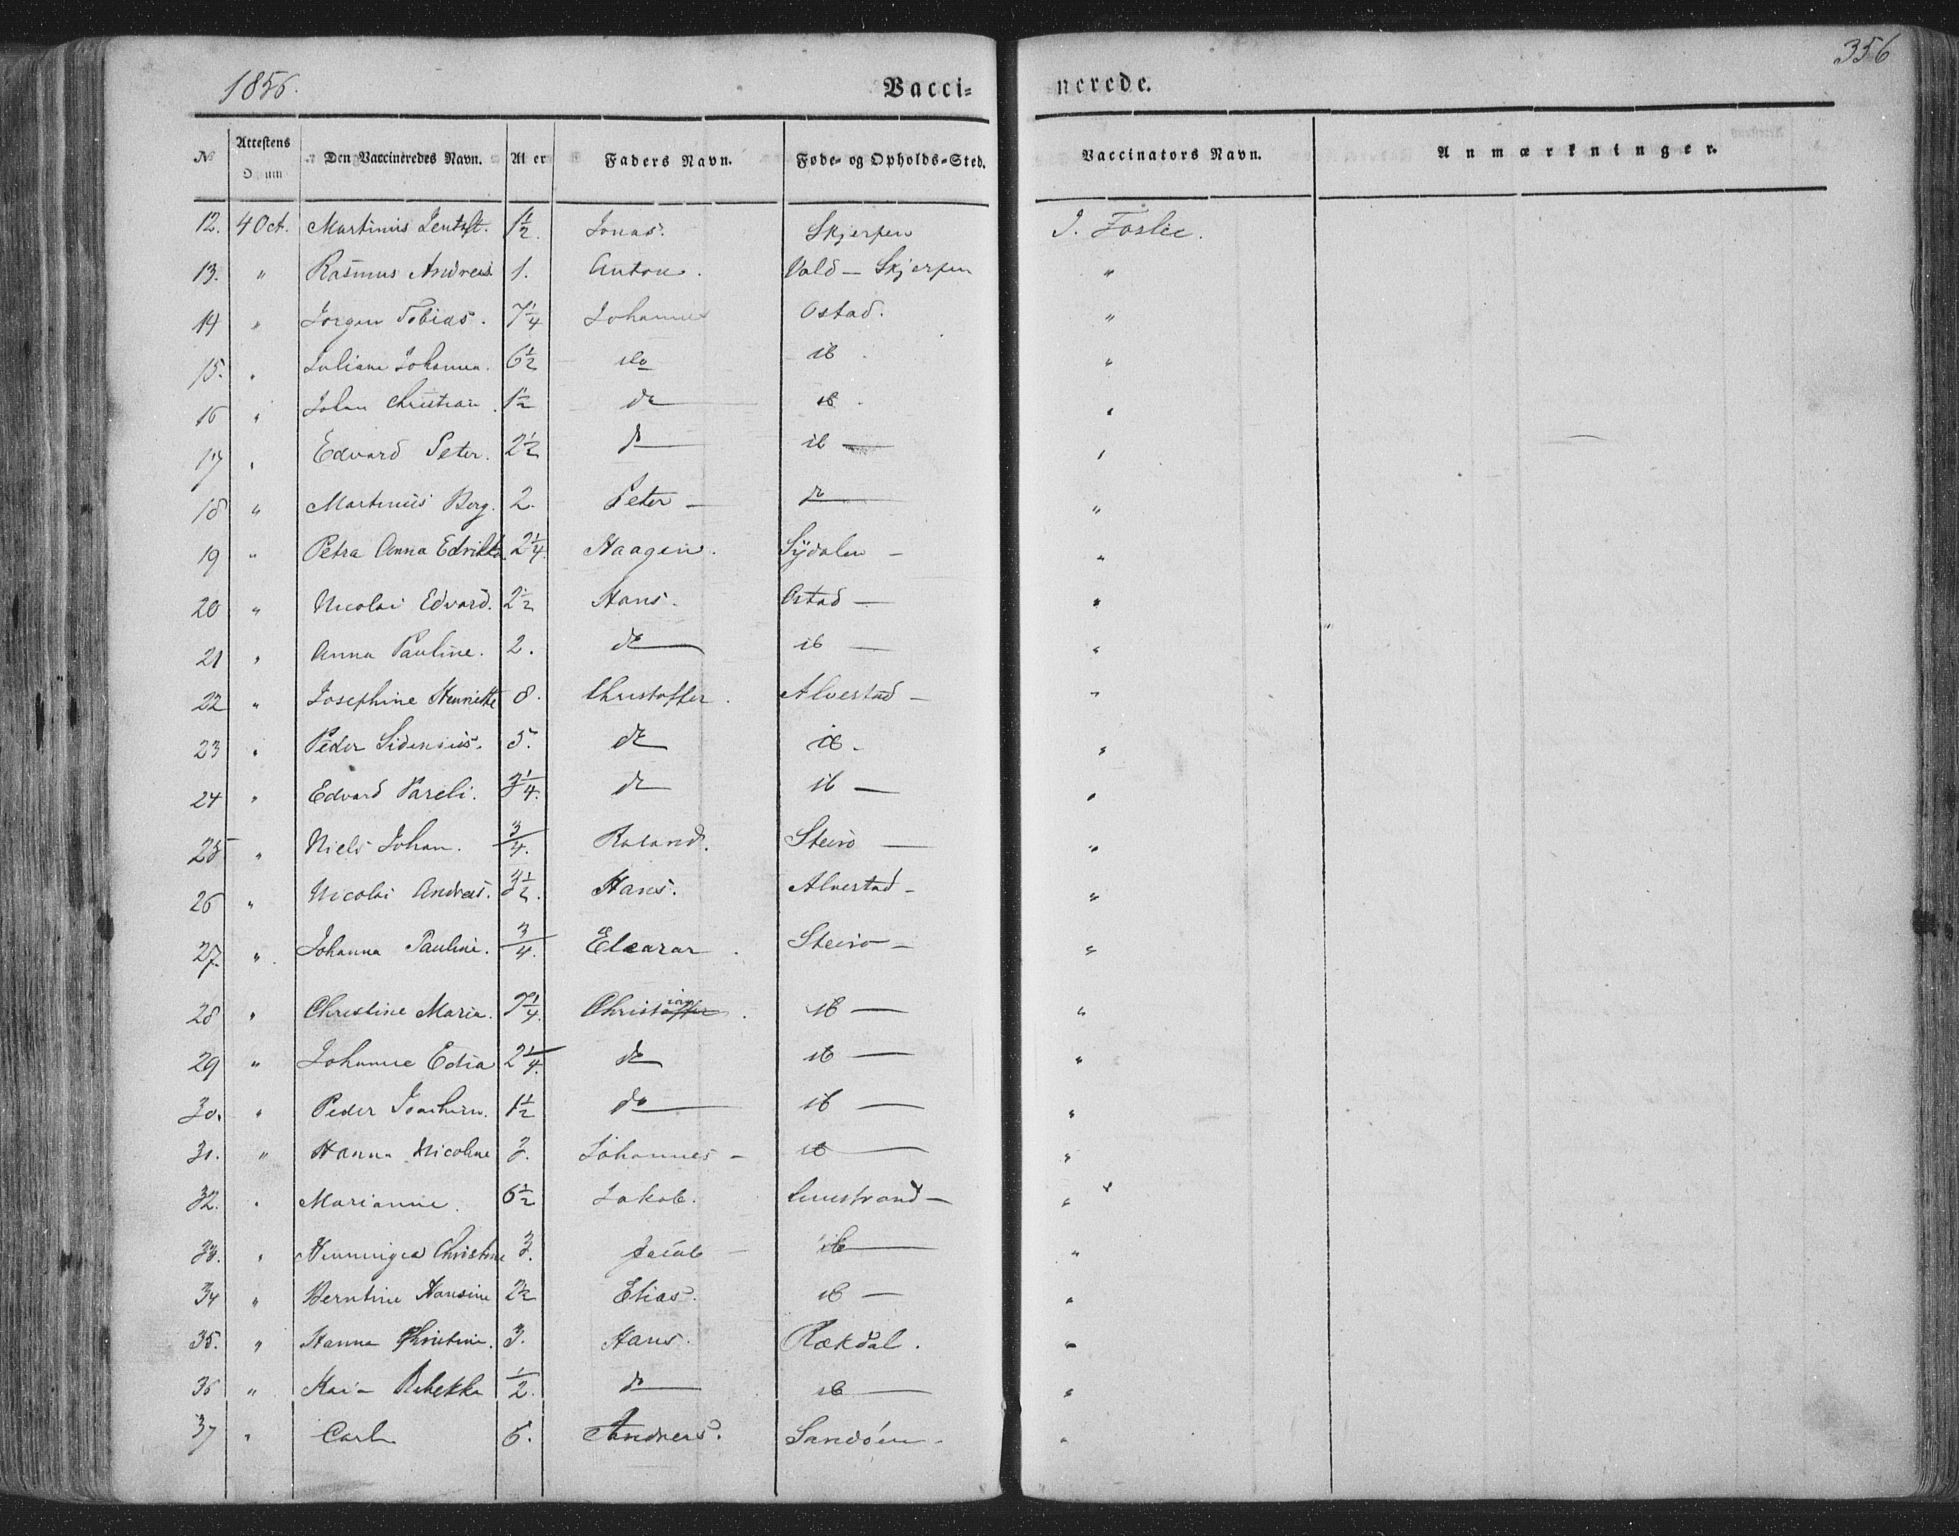 1856.
Vacci-
nerede.
356
No
Attestens Datum
Den Vaccineredes Navn.
Alder
Faders Navn.
Føde- og Opholds-Sted.
Vaccinators Navn.
Anmærkninger.
12. 4 Oct. Martinus 1½. Jonas. Skjerpen J. Foslie.
13. " Rasmus Andreas 1. Anton. Vold - Skjerpen "
14 " Jørgen Tobias. 7¼ Johannes Ostad. "
15. " Juliane Johanna. 6½ do ib. "
16 " Johan Christian. 1½ do ib. "
17 " Edvard Peter. 2½ do ib "
18 " Martinus Berg. 2. Peter - do "
19 " Petra Anna 2¼. Haagen. Sÿdalen - "
20 " Nicolai Edvard. 2½ Hans. Ostad - "
21 " Anna Pauline. 2. do ib - "
22 " Josephine Henriette 8. Christoffer. Alvestad - "
23 " Peder Sidenius. 5. do ib. "
24 " Edvard Pareli. 3¼. do ib - "
25 " Niels Johan. ¾. Roland. Steirø - "
26 " Nicolai Andreas. 3½. Hans. Alvestad - "
27. " Johanna Pauline. ¾ Eleazar. Steiro - "
28 " Christine Maria. 7¼. Christian. ib - "
29 " Johanne Edia 2¼. do ib - "
30. " Peder Joachim. 1½ do ib - "
31. " Hanna Nicoline 3. Johannes - ib "
32. " Marianne. 6½ Jakob. - "
33. " Henningia Christine 3. Jacob - ib "
34 " Berntine Hansine 2½ Elias. ib - "
35. " Hanna Christine. 3. Hans. Rækdal. "
36 " Rebekka ½. do ib "
37 " Carl 6. Andreas. Sandöen - "